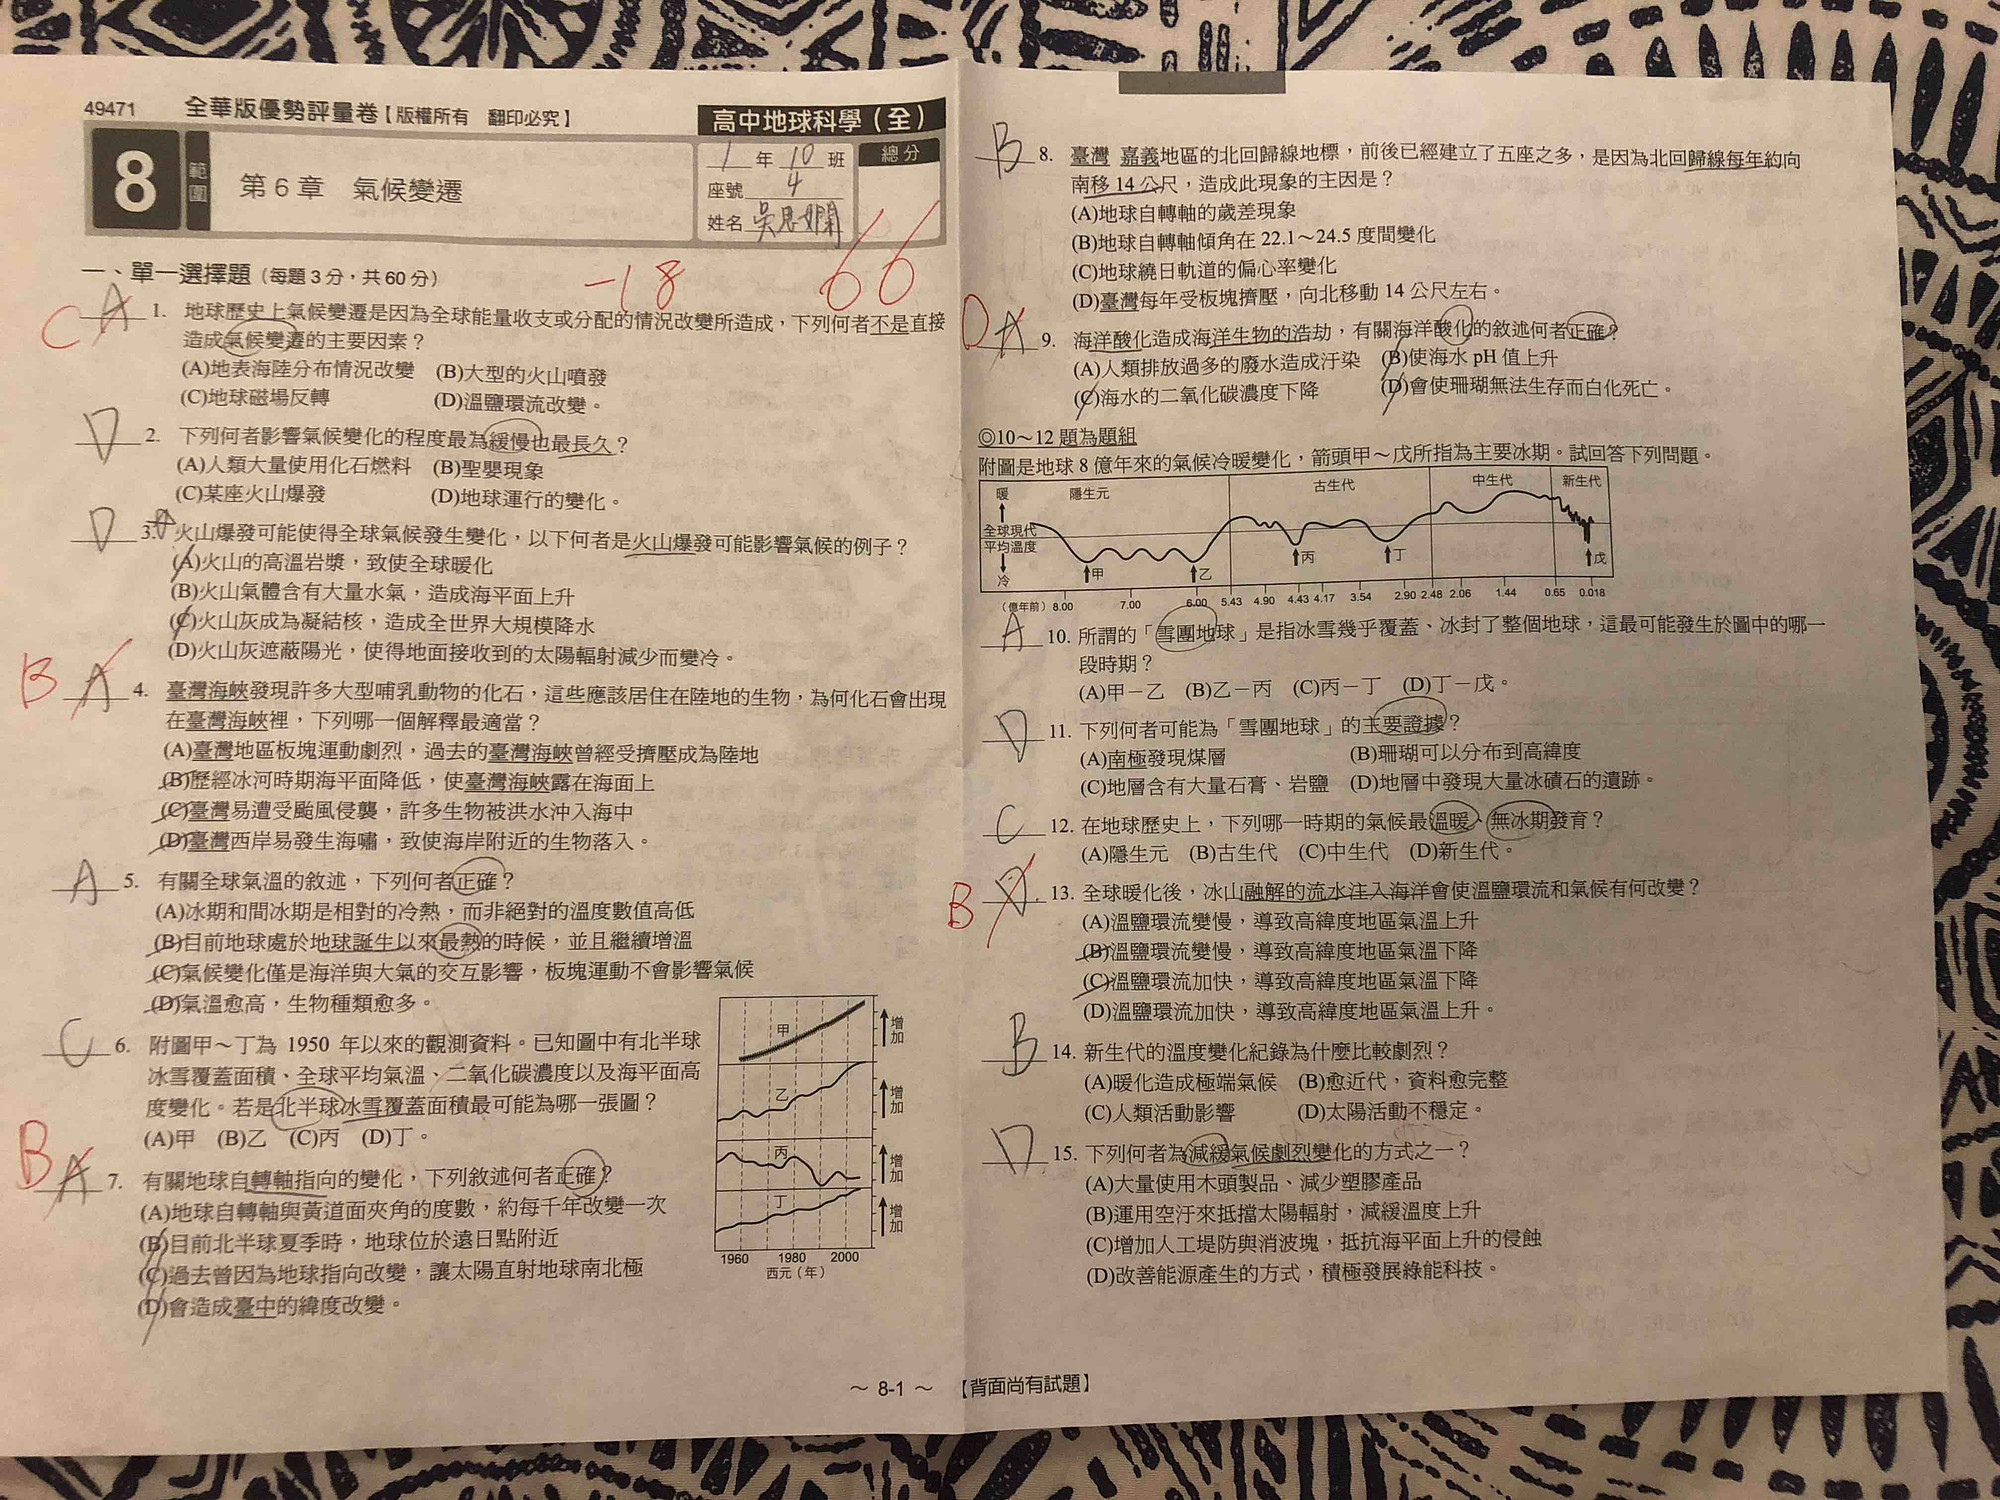 49471 全華版優勢評量卷【版權所有 翻印必究】
高中地球科學(全)
8
範圍
第6章 氣候變遷
1 年 10 班
座號 4
姓名 吳思嫻
總分
66
-18
一、單一選擇題(每題3分,共60分)
C A 1. 地球歷史上氣候變遷是因為全球能量收支或分配的情況改變所造成,下列何者不是直接
造成氣候變遷的主要因素?
(A)地表海陸分布情況改變 (B)大型的火山噴發
(C)地球磁場反轉 (D)溫鹽環流改變。
D 2. 下列何者影響氣候變化的程度最為緩慢也最長久?
(A)人類大量使用化石燃料 (B)聖嬰現象
(C)某座火山爆發 (D)地球運行的變化。
D 3. 火山爆發可能使得全球氣候發生變化,以下何者是火山爆發可能影響氣候的例子?
(A)火山的高溫岩漿,致使全球暖化
(B)火山氣體含有大量水氣,造成海平面上升
(C)火山灰成為凝結核,造成全世界大規模降水
(D)火山灰遮蔽陽光,使得地面接收到的太陽輻射減少而變冷。
B A 4. 臺灣海峽發現許多大型哺乳動物的化石,這些應該居住在陸地的生物,為何化石會出現
在臺灣海峽裡,下列哪一個解釋最適當?
(A)臺灣地區板塊運動劇烈,過去的臺灣海峽曾經受擠壓成為陸地
(B)歷經冰河時期海平面降低,使臺灣海峽露在海面上
(C)臺灣易遭受颱風侵襲,許多生物被洪水沖入海中
(D)臺灣西岸易發生海嘯,致使海岸附近的生物落入。
A 5. 有關全球氣溫的敘述,下列何者正確?
(A)冰期和間冰期是相對的冷熱,而非絕對的溫度數值高低
(B)目前地球處於地球誕生以來最熱的時候,並且繼續增溫
(C)氣候變化僅是海洋與大氣的交互影響,板塊運動不會影響氣候
(D)氣溫愈高,生物種類愈多。
C 6. 附圖甲~丁為 1950 年以來的觀測資料。已知圖中有北半球
冰雪覆蓋面積、全球平均氣溫、二氧化碳濃度以及海平面高
度變化。若是北半球冰雪覆蓋面積最可能為哪一張圖?
(A)甲 (B)乙 (C)丙 (D)丁。
甲 增加
乙 增加
丙 增加
丁 增加
1960 1980 2000
西元(年)
B A 7. 有關地球自轉軸指向的變化,下列敘述何者正確?
(A)地球自轉軸與黃道面夾角的度數,約每千年改變一次
(B)目前北半球夏季時,地球位於遠日點附近
(C)過去曾因為地球指向改變,讓太陽直射地球南北極
(D)會造成臺中的緯度改變。
B 8. 臺灣 嘉義地區的北回歸線地標,前後已經建立了五座之多,是因為北回歸線每年約向
南移 14 公尺,造成此現象的主因是?
(A)地球自轉軸的歲差現象
(B)地球自轉軸傾角在 22.1~24.5 度間變化
(C)地球繞日軌道的偏心率變化
(D)臺灣每年受板塊擠壓,向北移動 14 公尺左右。
D A 9. 海洋酸化造成海洋生物的浩劫,有關海洋酸化的敘述何者正確?
(A)人類排放過多的廢水造成汙染 (B)使海水 pH 值上升
(C)海水的二氧化碳濃度下降 (D)會使珊瑚無法生存而白化死亡。
◎10~12 題為題組
附圖是地球 8 億年來的氣候冷暖變化,箭頭甲~戊所指為主要冰期。試回答下列問題。
暖 隱生元 古生代 中生代 新生代
全球現代
平均溫度
冷 甲 乙 丙 丁 戊
(億年前) 8.00 7.00 6.00 5.43 4.90 4.43 4.17 3.54 2.90 2.48 2.06 1.44 0.65 0.018
A 10. 所謂的「雪團地球」是指冰雪幾乎覆蓋、冰封了整個地球,這最可能發生於圖中的哪一
段時期?
(A)甲-乙 (B)乙-丙 (C)丙-丁 (D)丁-戊。
D 11. 下列何者可能為「雪團地球」的主要證據?
(A)南極發現煤層 (B)珊瑚可以分布到高緯度
(C)地層含有大量石膏、岩鹽 (D)地層中發現大量冰磧石的遺跡。
C 12. 在地球歷史上,下列哪一時期的氣候最溫暖、無冰期發育?
(A)隱生元 (B)古生代 (C)中生代 (D)新生代。
B 13. 全球暖化後,冰山融解的流水注入海洋會使溫鹽環流和氣候有何改變?
(A)溫鹽環流變慢,導致高緯度地區氣溫上升
(B)溫鹽環流變慢,導致高緯度地區氣溫下降
(C)溫鹽環流加快,導致高緯度地區氣溫下降
(D)溫鹽環流加快,導致高緯度地區氣溫上升。
B 14. 新生代的溫度變化紀錄為什麼比較劇烈?
(A)暖化造成極端氣候 (B)愈近代,資料愈完整
(C)人類活動影響 (D)太陽活動不穩定。
D 15. 下列何者為減緩氣候劇烈變化的方式之一?
(A)大量使用木頭製品、減少塑膠產品
(B)運用空汙來抵擋太陽輻射,減緩溫度上升
(C)增加人工堤防與消波塊,抵抗海平面上升的侵蝕
(D)改善能源產生的方式,積極發展綠能科技。
~ 8-1 ~ 【背面尚有試題】